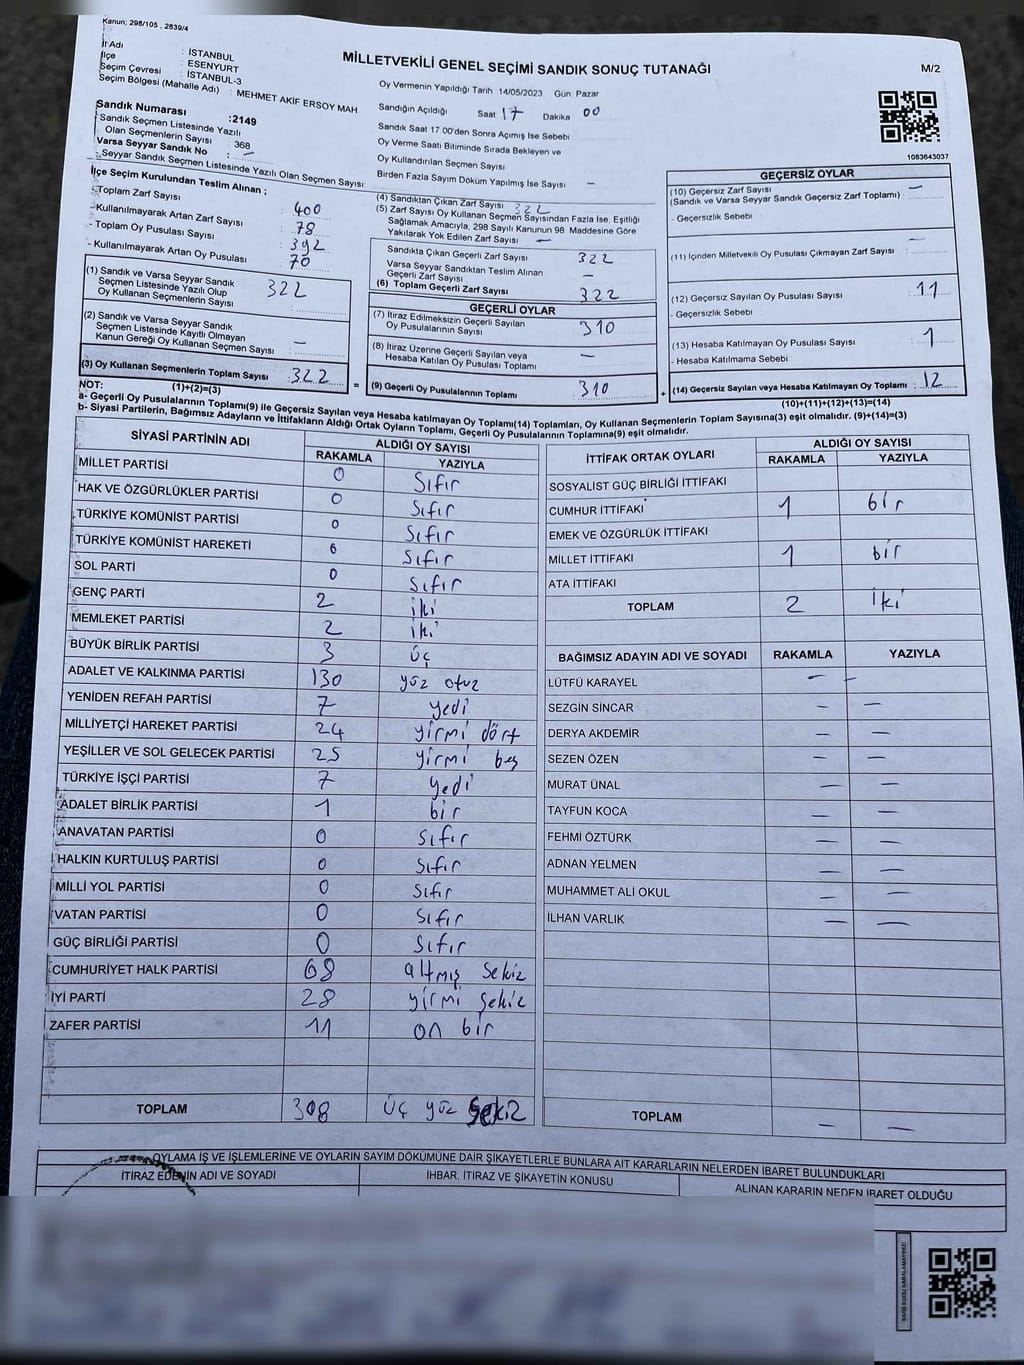 Kanun; 298/105 , 2839/4
İl Adı : İSTANBUL
İlçe : ESENYURT
Seçim Çevresi : İSTANBUL-3
Seçim Bölgesi (Mahalle Adı) : MEHMET AKİF ERSOY MAH.
MİLLETVEKİLİ GENEL SEÇİMİ SANDIK SONUÇ TUTANAĞI
M/2
Oy Vermenin Yapıldığı Tarih 14/05/2023 Gün Pazar
Sandığın Açıldığı Saat 17 Dakika 00
Sandık Saat 17 00'den Sonra Açımış İse Sebebi
Oy Verme Saati Bitiminde Sırada Bekleyen ve
Oy Kullandırılan Seçmen Sayısı
Birden Fazla Sayım Döküm Yapılmış İse Sayısı –
1083643037
Sandık Numarası :2149
Sandık Seçmen Listesinde Yazılı
Olan Seçmenlerin Sayısı : 368
Varsa Seyyar Sandık No : –
- Seyyar Sandık Seçmen Listesinde Yazılı Olan Seçmen Sayısı
İlçe Seçim Kurulundan Teslim Alınan ;
- Toplam Zarf Sayısı : 400
- Kullanılmayarak Artan Zarf Sayısı : 78
- Toplam Oy Pusulası Sayısı : 392
- Kullanılmayarak Artan Oy Pusulası : 70
(1) Sandık ve Varsa Seyyar Sandık
Seçmen Listesinde Yazılı Olup
Oy Kullanan Seçmenlerin Sayısı : 322
(2) Sandık ve Varsa Seyyar Sandık
Seçmen Listesinde Kayıtlı Olmayan
Kanun Gereği Oy Kullanan Seçmen Sayısı : –
(3) Oy Kullanan Seçmenlerin Toplam Sayısı : 322
(1)+(2)=(3)
(4) Sandıktan Çıkan Zarf Sayısı : 322
(5) Zarf Sayısı Oy Kullanan Seçmen Sayısından Fazla İse, Eşitliği
Sağlamak Amacıyla, 298 Sayılı Kanunun 98 Maddesine Göre
Yakılarak Yok Edilen Zarf Sayısı : –
Sandıkta Çıkan Geçerli Zarf Sayısı 322
Varsa Seyyar Sandıktan Teslim Alınan
Geçerli Zarf Sayısı –
(6) Toplam Geçerli Zarf Sayısı 322
GEÇERLİ OYLAR
(7) İtiraz Edilmeksizin Geçerli Sayılan
Oy Pusulalarının Sayısı : 310
(8) İtiraz Üzerine Geçerli Sayılan veya
Hesaba Katılan Oy Pusulası Toplamı –
= (9) Geçerli Oy Pusulalarının Toplamı : 310
GEÇERSİZ OYLAR
(10) Geçersiz Zarf Sayısı –
(Sandık ve Varsa Seyyar Sandık Geçersiz Zarf Toplamı) :
- Geçersizlik Sebebi
(11) İçinden Milletvekili Oy Pusulası Çıkmayan Zarf Sayısı : –
(12) Geçersiz Sayılan Oy Pusulası Sayısı : 11
- Geçersizlik Sebebi
(13) Hesaba Katılmayan Oy Pusulası Sayısı : 1
- Hesaba Katılmama Sebebi
+ (14) Geçersiz Sayılan veya Hesaba Katılmayan Oy Toplamı : 12
(10)+(11)+(12)+(13)=(14)
NOT:
a- Geçerli Oy Pusulalarının Toplamı(9) ile Geçersiz Sayılan veya Hesaba katılmayan Oy Toplamı(14) Toplamları, Oy Kullanan Seçmenlerin Toplam Sayısına(3) eşit olmalıdır. (9)+(14)=(3)
b- Siyasi Partilerin, Bağımsız Adayların ve İttifakların Aldığı Ortak Oyların Toplamı, Geçerli Oy Pusulalarının Toplamına(9) eşit olmalıdır.
SİYASİ PARTİNİN ADI ALDIĞI OY SAYISI
RAKAMLA YAZIYLA
MİLLET PARTİSİ 0 Sıfır
HAK VE ÖZGÜRLÜKLER PARTİSİ 0 Sıfır
TÜRKİYE KOMÜNİST PARTİSİ 0 Sıfır
TÜRKİYE KOMÜNİST HAREKETİ 0 Sıfır
SOL PARTİ 0 Sıfır
GENÇ PARTİ 2 iki
MEMLEKET PARTİSİ 2 iki
BÜYÜK BİRLİK PARTİSİ 3 üç
ADALET VE KALKINMA PARTİSİ 130 yüz otuz
YENİDEN REFAH PARTİSİ 7 yedi
MİLLİYETÇİ HAREKET PARTİSİ 24 yirmi dört
YEŞİLLER VE SOL GELECEK PARTİSİ 25 yirmi beş
TÜRKİYE İŞÇİ PARTİSİ 7 yedi
ADALET BİRLİK PARTİSİ 1 bir
ANAVATAN PARTİSİ 0 sıfır
HALKIN KURTULUŞ PARTİSİ 0 sıfır
MİLLİ YOL PARTİSİ 0 sıfır
VATAN PARTİSİ 0 sıfır
GÜÇ BİRLİĞİ PARTİSİ 0 sıfır
CUMHURİYET HALK PARTİSİ 68 altmış sekiz
İYİ PARTİ 28 yirmi sekiz
ZAFER PARTİSİ 11 on bir
TOPLAM 308 üç yüz sekiz
İTTİFAK ORTAK OYLARI ALDIĞI OY SAYISI
RAKAMLA YAZIYLA
SOSYALİST GÜÇ BİRLİĞİ İTTİFAKI
CUMHUR İTTİFAKI 1 bir
EMEK VE ÖZGÜRLÜK İTTİFAKI
MİLLET İTTİFAKI 1 bir
ATA İTTİFAKI
TOPLAM 2 iki
BAĞIMSIZ ADAYIN ADI VE SOYADI RAKAMLA YAZIYLA
LÜTFÜ KARAYEL – –
SEZGİN SİNCAR – –
DERYA AKDEMİR – –
SEZEN ÖZEN – –
MURAT ÜNAL – –
TAYFUN KOCA – –
FEHMİ ÖZTÜRK – –
ADNAN YELMEN – –
MUHAMMET ALİ OKUL – –
İLHAN VARLIK – –
TOPLAM – –
OYLAMA İŞ VE İŞLEMLERİNE VE OYLARIN SAYIM DÖKÜMÜNE DAİR ŞİKAYETLERLE BUNLARA AİT KARARLARIN NELERDEN İBARET BULUNDUKLARI
İTİRAZ EDENİN ADI VE SOYADI İHBAR, İTİRAZ VE ŞİKAYETİN KONUSU ALINAN KARARIN NEDEN İBARET OLDUĞU